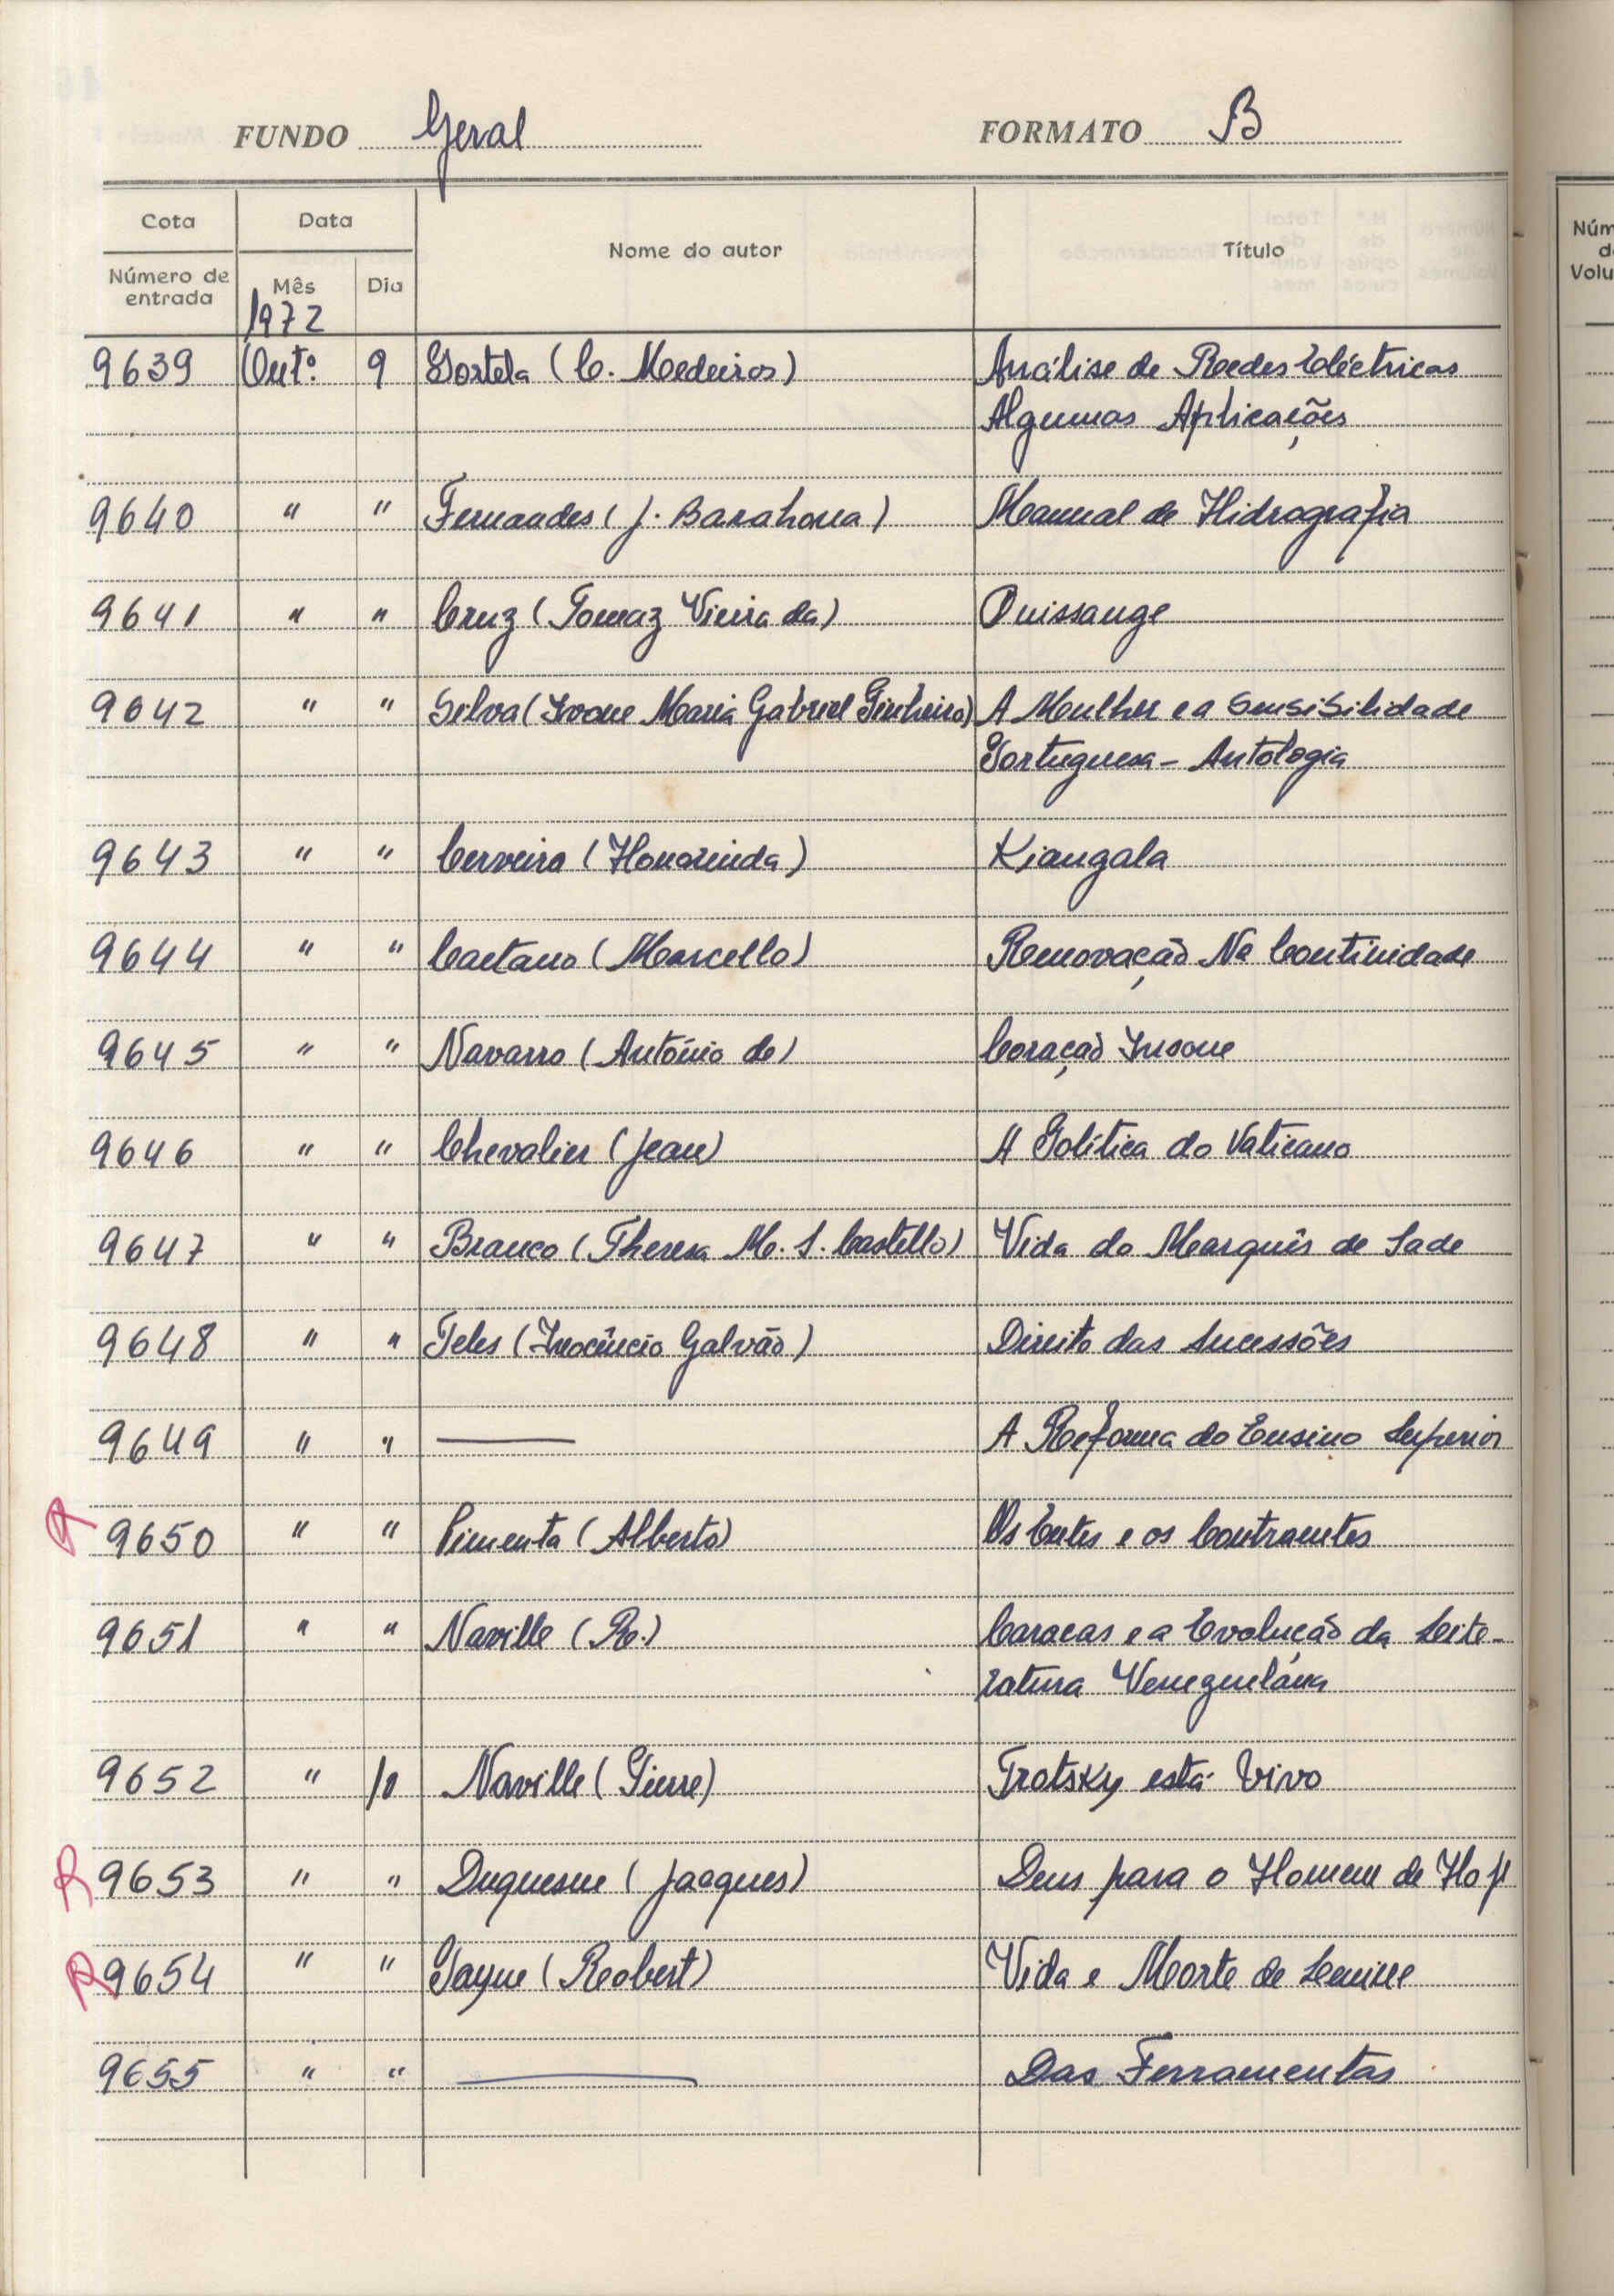 FUNDO Geral FORMATO B
Cota Data Nome do autor Título
Número de entrada Mês Dia
1972
9639 Outº. 9 Portela (C. Medeiros) Análise de Redes Eléctricas
Algumas Aplicações
9640 " " Fernandes (J. Barahona) Manual de Hidrografia
9641 " " Cruz (Tomaz Vieira da) Quissange
9642 " " Silva (Ivone Maria Gabriel Pinheiro) A Mulher e a Sensibilidade
Portuguesa - Antologia
9643 " " Cerveira (Honorinda) Kiangala
9644 " " Caetano (Marcello) Renovação Na Continidade
9645 " " Navarro (António de) Coração Insone
9646 " " Chevalier (Jean) A Política do Vaticano
9647 " " Branco (Theresa M. S. Castello) Vida do Marquês de Sade
9648 " " Teles (Inocêncio Galvão) Direito das Sucessões
9649 " " — A Reforma do Ensino Superior
R 9650 " " Pimenta (Alberto) Os Entes e os Contraentes
9651 " " Naville (R.) Caracas e a Evolução da Leite-
ratura Venezuelána
9652 " 10 Naville (Pierre) Trotsky está Vivo
R 9653 " " Duquesne (Jacques) Deus para o Homem de Hoje
R 9654 " " Payne (Robert) Vida e Morte de Lenine
9655 " " — Das Ferramentas
Núm
d
Volu